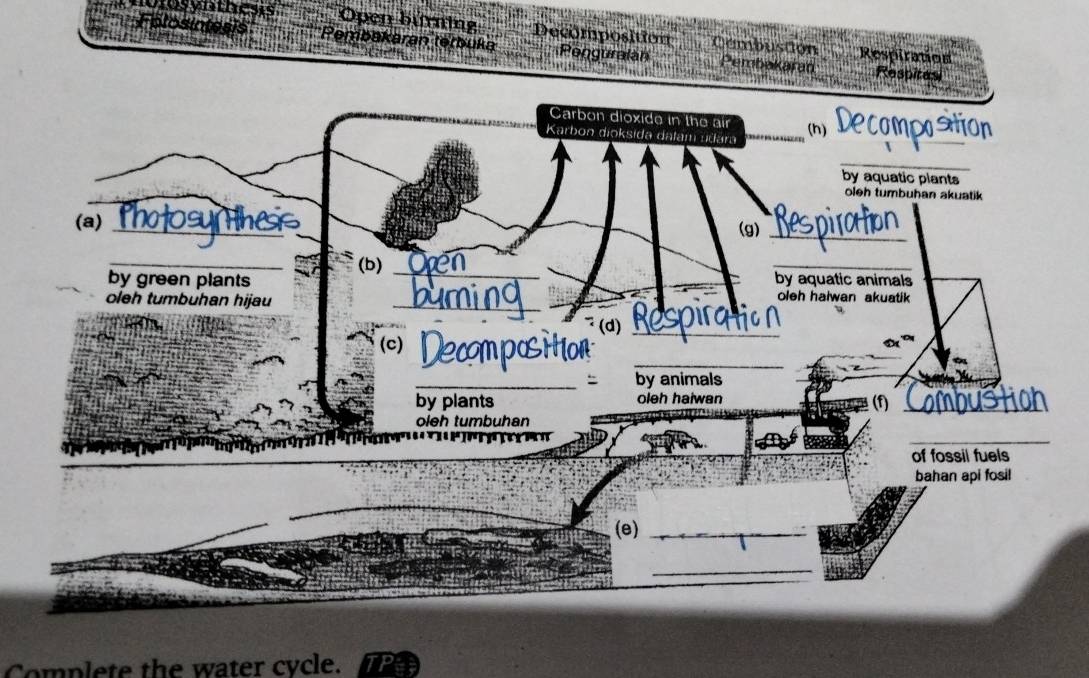 Open burning
Decomposition
Combustion
Respiration
Fotosintesis
Pembakaran terbuka
Penguraian
Pembakaran
Respirasi
Carbon dioxide in the air
Karbon dioksida dalam udara
(h) Decomposition
by aquatic plants
oleh tumbuhan akuatik
(a) Photosynthesis
by green plants
oleh tumbuhan hijau
(g) Respiration
by aquatic animals
oleh haiwan akuatik
(b) Open
burning
(d) Respiration
by animals
oleh haiwan
(c) Decomposition
by plants
oleh tumbuhan
(f) Combustion
of fossil fuels
bahan api fosil
(e)
Complete the water cycle.